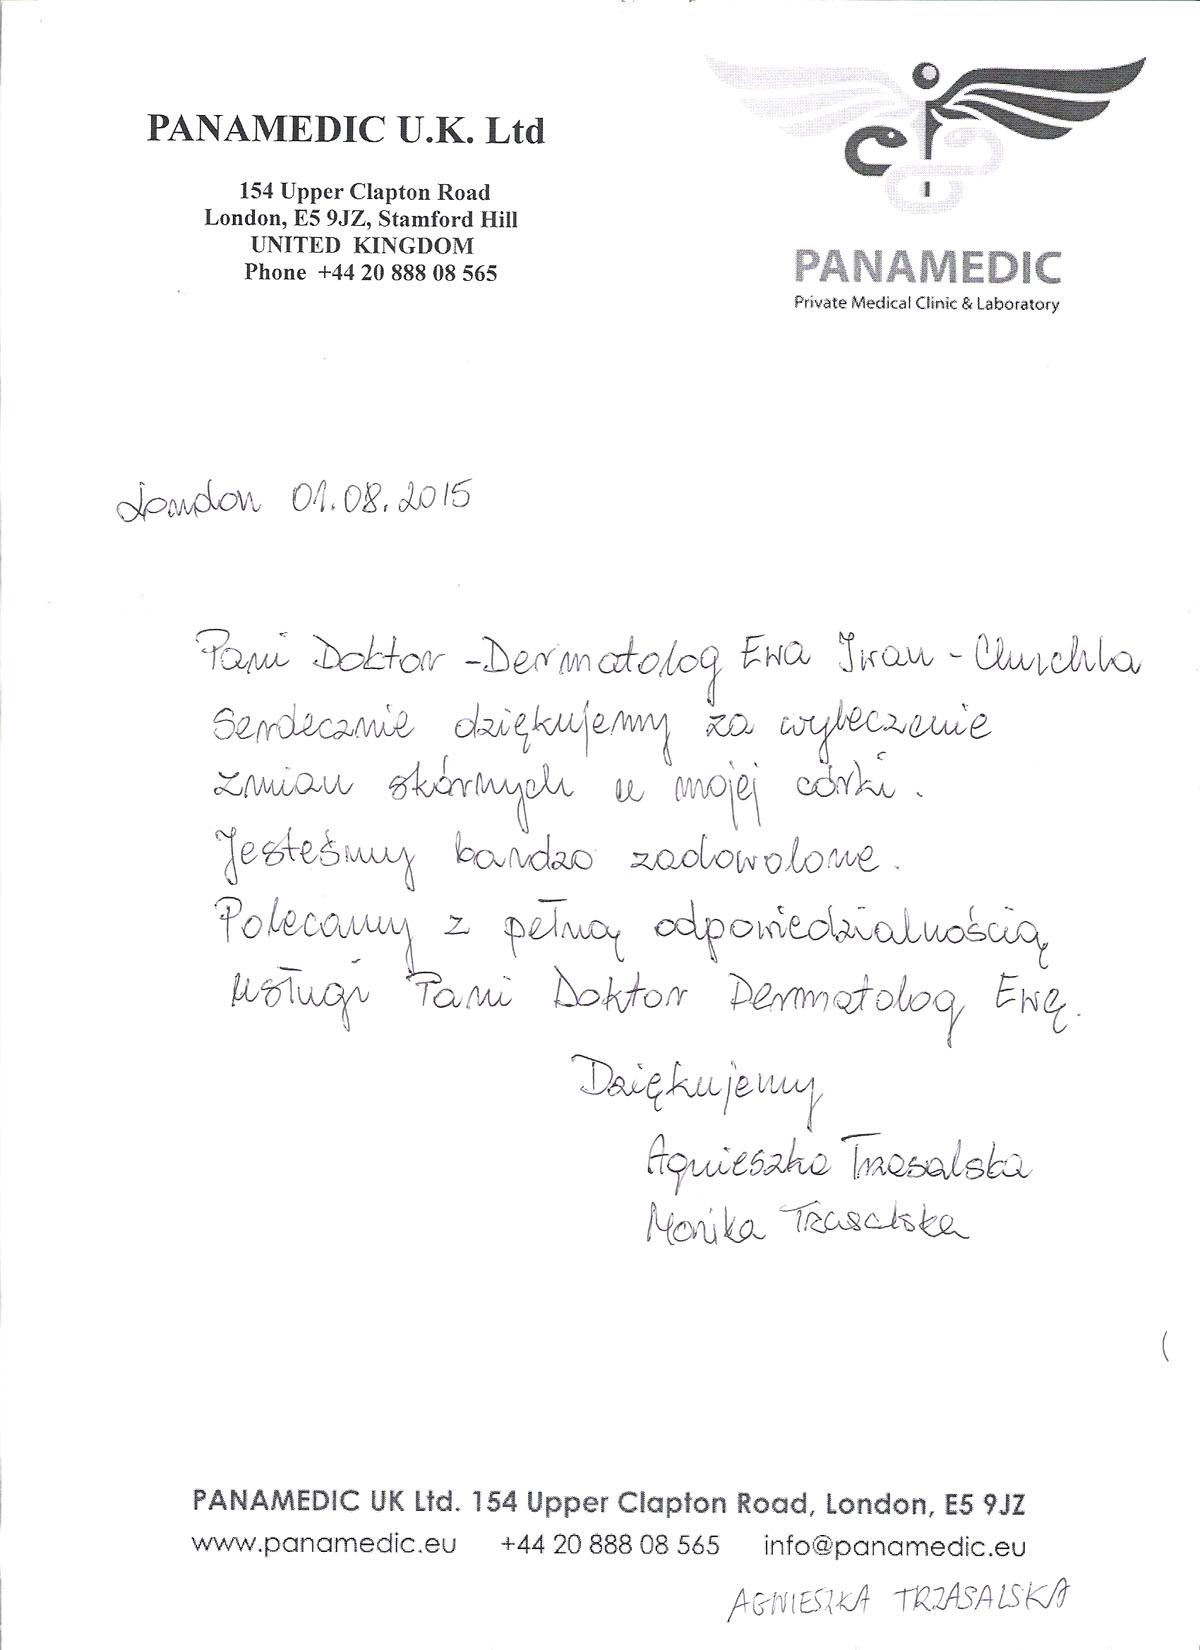 PANAMEDIC U.K. Ltd
154 Upper Clapton Road
London, E5 9JZ, Stamford Hill
UNITED KINGDOM
Phone +44 20 888 08 565
PANAMEDIC
Private Medical Clinic & Laboratory
London 01.08.2015
Pani Doktor - Dermatolog Ewa Iwan -
Serdecznie dziękujemy za wyleczenie
zmian skórnych u mojej córki.
Jesteśmy bardzo zadowolone.
Polecamy z pełną odpowiedzialnością
usługi Pani Doktor Dermatolog Ewę.
Dziękujemy
Agnieszka Trzasalska
Monika Trzasalska
PANAMEDIC UK Ltd. 154 Upper Clapton Road, London, E5 9JZ
www.panamedic.eu +44 20 888 08 565 info@panamedic.eu
AGNIESZKA TRZASALSKA